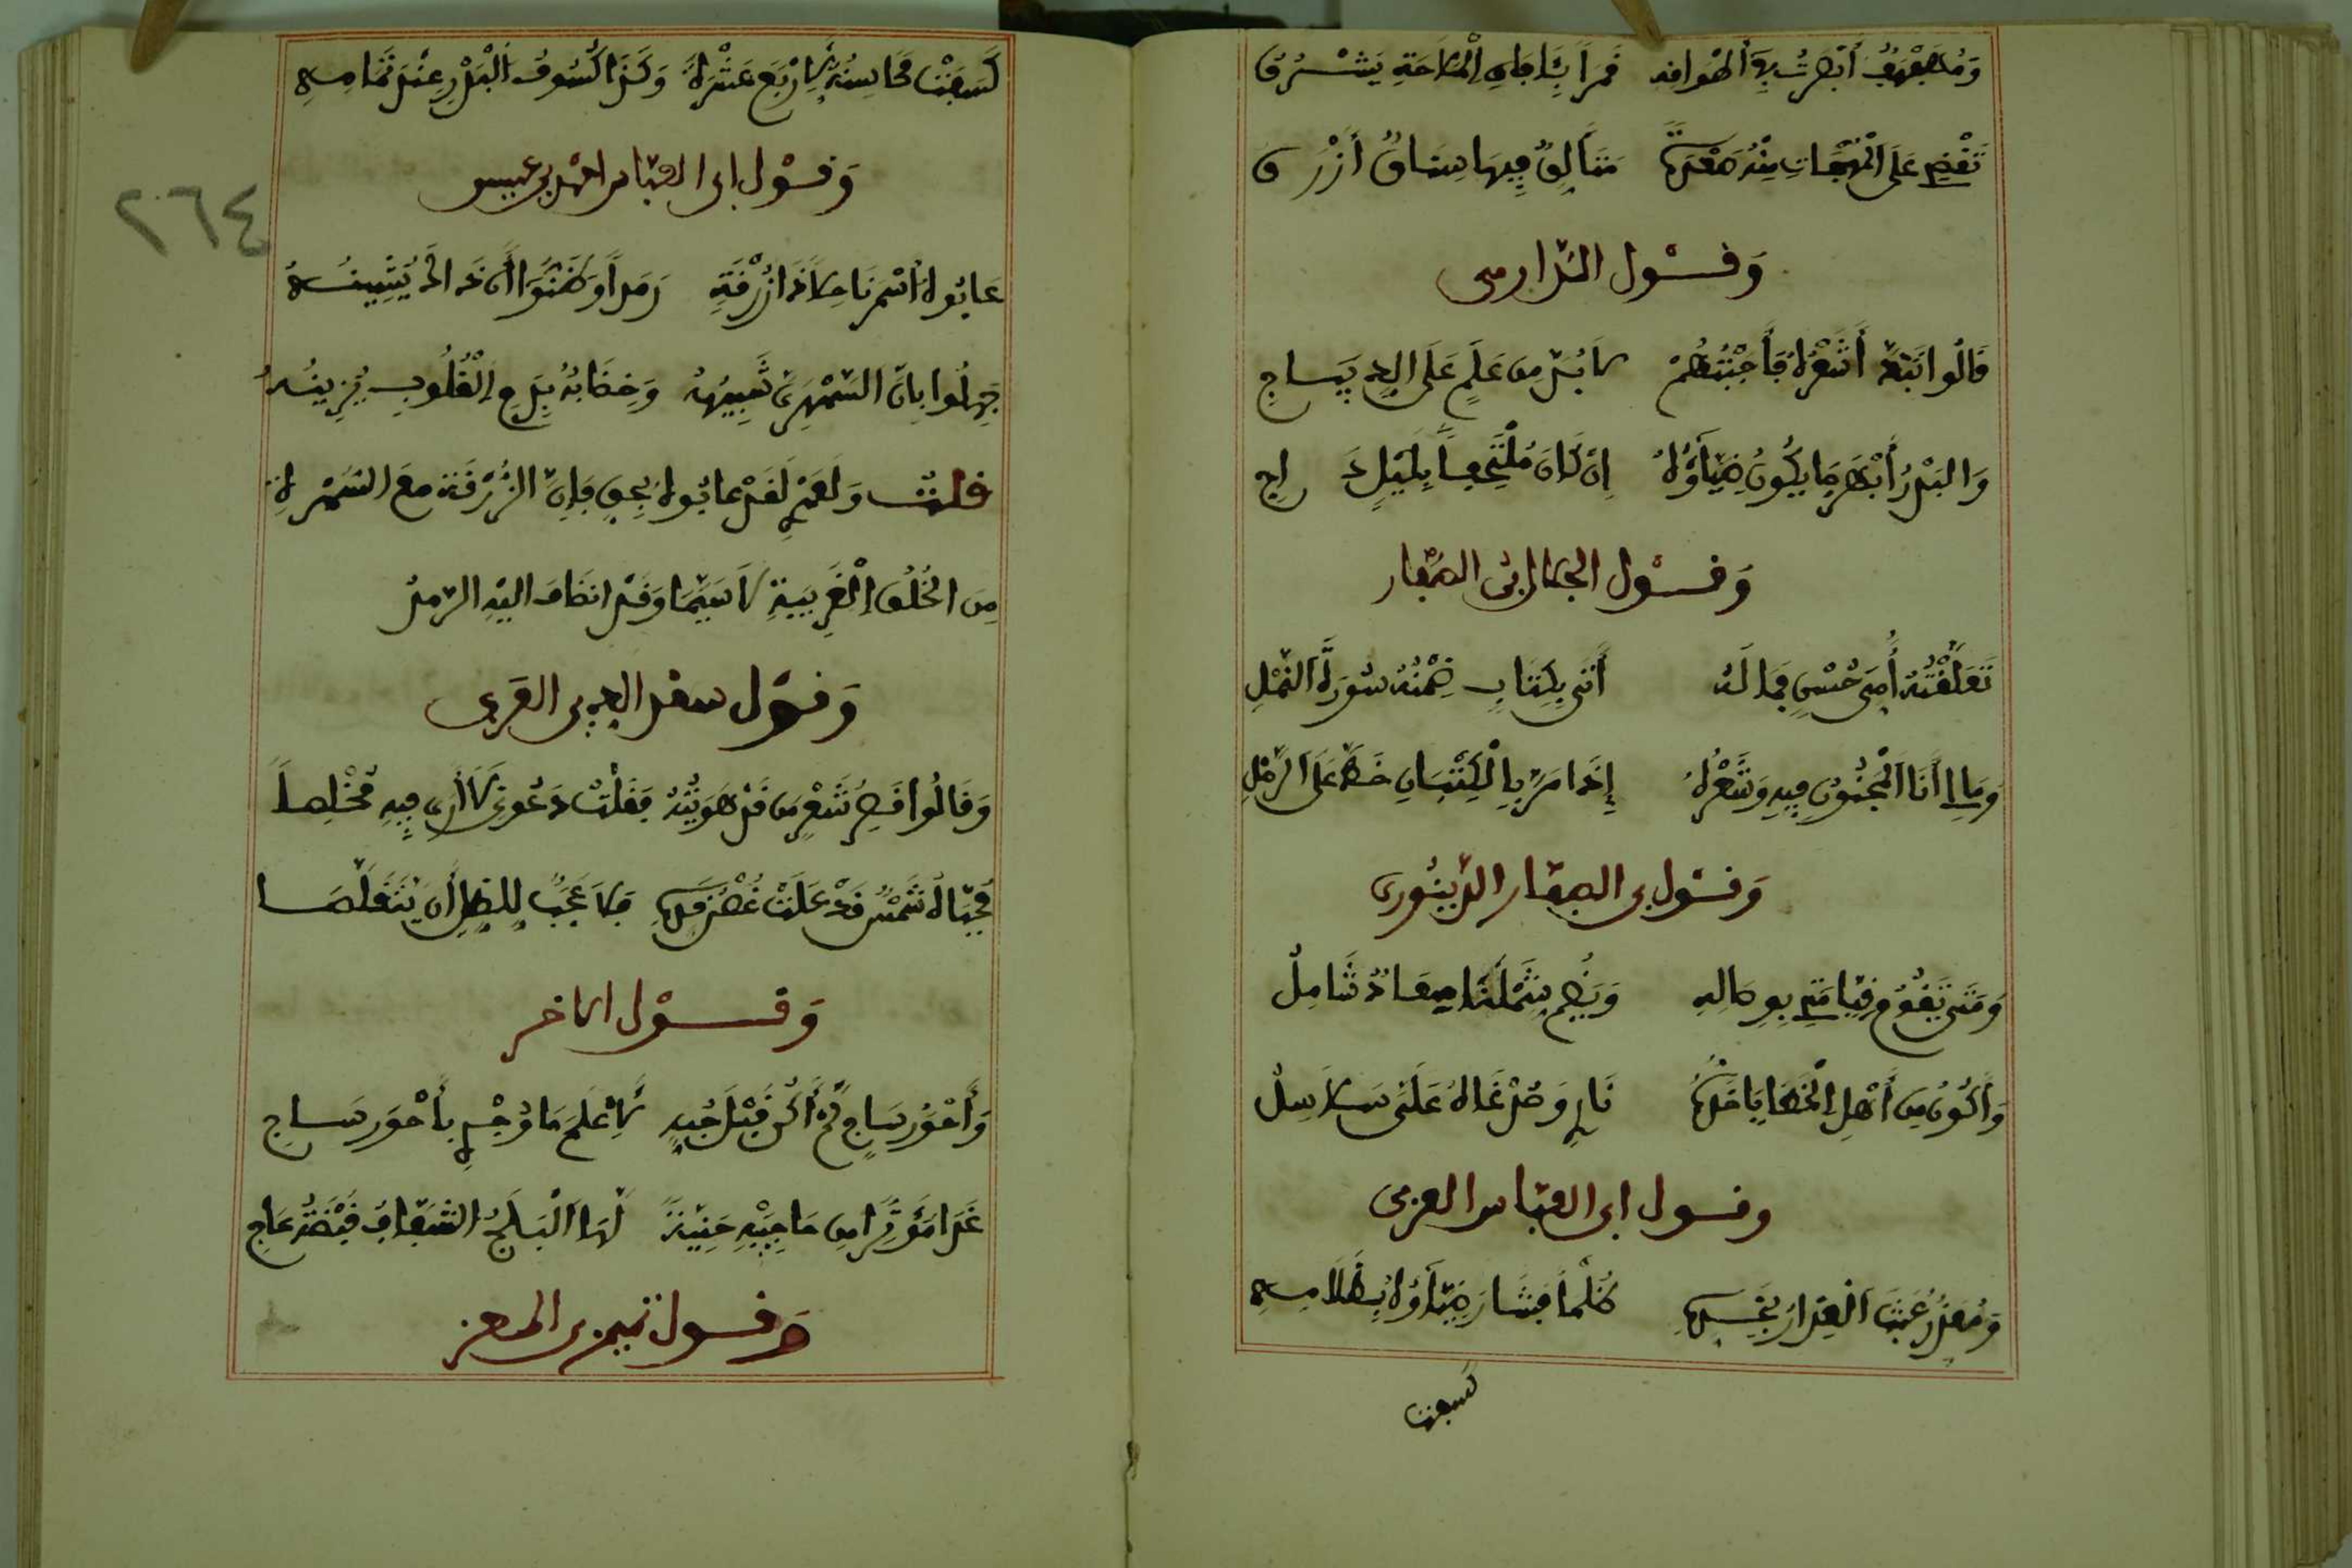 وَمُهَفْهَفٍ أَبْصَرْتُ فِي أَطْوَاقِهِ قَمَرًا بِآفَاقِ الْمَلَاحَةِ يُشْرِقُ
تَقْضِي عَلَى الْمُهَجَاتِ مِنْهُ صَعْدَةٌ مُتَأَلِّقٌ فِيهَا سِنَانٌ أَزْرَقُ
وَقَوْل الدّارمي
قَالُوا نَبَتَ شَعْرُهُ فَأَجَبْتُهُمْ لَا بُدَّ مِن عَلَمٍ عَلَى الدِيبَاجِ
وَالبَدْرُ أَبْهَر مَا يَكُونُ ضِيَاؤُهُ إِن كَانَ مُلْتَحِفًا بِلَيْلٍ دَاجِ
وَقَوْل الجمال ابن الصفار
تَعَلَّقْتُهُ أُمِّيَّ حُسْنٍ فَمَا لَهُ أَتَى بِكِتَابٍ ضِمْنُهُ سُورَةُ النَّمْلِ
وَمَا لِي أَنَا الْمَجْنُونُ فِيهِ وَشَعْرُهُ إِذَا مَرَّ بِالْكُثْبَانِ خَطَّ عَلَى الرَّمْلِ
وَقَوْل بن العطار الدِّينَوري
وَمَتَى تَقُومُ قِيَامَتِي بِوِصَالِهِ وَيَضُمُّ شَمْلَنَا مَعَادٌ شَامِلُ
وَأَكُونُ مِن أَهْلِ الْخَطَايَا خَدُّهُ نَارِي وَصُدْغَاهُ عَلَيَّ سَلَاسِلُ
وقول ابي العباس العزفي
وَمُعَذَّرٍ عَبَثَ الْعِذَارُ بِخَدِّهِ كُلُّمَا فَشَا رَضِيَّاؤُهُ بِظَلَامِهِ
كسفت
كَسَفَتْ مَحَاسِنُهُ لِأَرْبَعَ عَشْرَةٍ وَكَذَا كُسُوفُ الْبَدْرِ عِنْدَ تَمَامِهِ
وَقَوْل ابي العبّاس احمد بن عيسى
عَابُوهُ أَسْمَرَ نَاحِلًا ذَا زُرْقَةٍ رَمِدًا وَظَنُّوا أَن ذَاكَ يُشِينُهُ
جَهِلُوا بِأَنَّ السَّمْهَرِيَّ شَبِيهُهُ وَخِضَابُهُ بِدَمِ الْقُلُوبِ يَزِينُهُ
قلت وَلَعَمْرِي لَقَدْ عَابُوهُ بِحَقٍّ فَإِنَّ الزُّرْقَة مَعَ السُّمْرَةِ
مِن الخُلُقِ الْغَرِيبَةِ لَا سِيَّمَا وَقَد انضَافَ إليْهِ الرَّمَدُ
وَقَوْل سعد الدين بن العربي
وَقَالُوا قَصِيرٌ شَعْر مَن قَدْ هَوِيتَهُ فَقُلْتُ دَعُونِي لَا أَرَى فِيهِ مُخْلِصًا
مُحَيَّاهُ شَمْسٌ قَدْ عَلَتْ غُصْنَ قَدِّهِ فَلَا عَجَبٌ لِلظِلِّ أَن يَتَقَلَّصَا
وَقَوْل الآخر
وَأَحْوَر سَاجٍ لَمْ أَكُنْ قَبْلَ حُبِّهِ لِأَعْلَمَ مَا وَجْدِي بِأَحْوَر سَاجِ
غَدَا مُؤْتِرًا مِن حَاجِبَيْهِ حَنِيَّةً لَهَا الْبَلَجُ الشَّفَّافُ قَبْضَةُ عَاجِ
وَقَوْل تميم بن المعز
٢٦٤